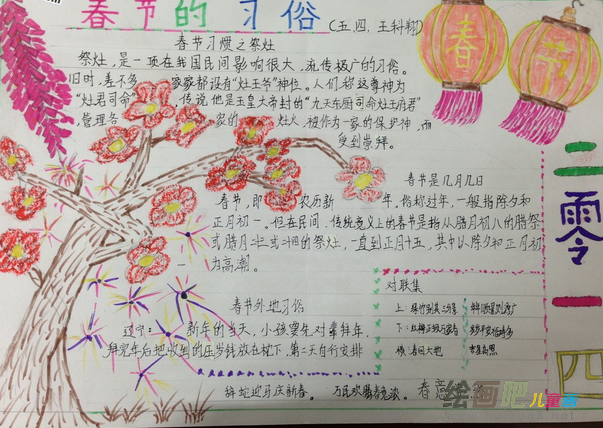 春节的习俗
(五.四.王科翔)
春节习惯之祭灶
祭灶,是一项在我国民间影响很大,流传极广的习俗。
旧时,差不多家家都设有“灶王爷”神位。人们称这尊神为
“灶君司命”,传说他是玉皇大帝封的“九天东厨司命灶王府君”
,管理各家的灶火,被作为一家的保护神,而
受到崇拜。
春节是几月几日
春节,即农历新年,俗称过年,一般指除夕和
正月初一。但在民间,传统意义上的春节是指从腊月初八的腊祭
或腊月二十三或二十四的祭灶,一直到正月十五,其中以除夕和正月初
一为高潮。
春节外地习俗
辽宁: 新年的当天,小孩要先对长辈拜年,
拜完年后把收到的压岁钱放在枕下,第二天自行安排
对联集
上:
下:
横:春回大地
辞蛇迎马庆新春。 万民欢腾春意浓。 春意
春节
二零一四
绘画吧 儿童画